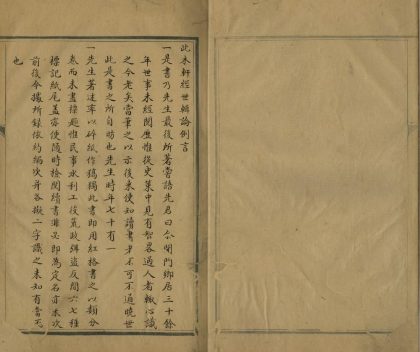 此木軒經世輯論例言
一是書乃先生最後所著嘗語先君曰余閉門鄉居三十餘
年世事未經閱歷惟從史集中見有智畧過人者輒心識
之今老矣當筆之以示後來使知讀書者不可不通曉世
此是書之所自昉也先生時年七十有一
一先生著述率以碎紙作稿獨此書即用紅格書之以類分
卷而未盡標題惟民事水利工役荒政緝盗反間六七種
標記紙尾蓋
便隨時檢閱續書
又即為定名亦未次
前後今據所錄依約編次每卷擬二字識之未知有當否
也